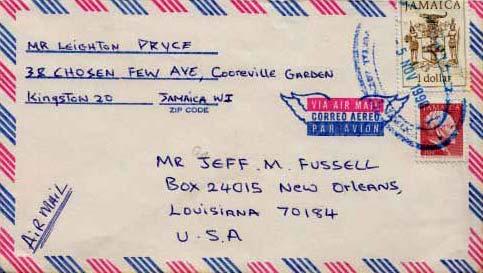 JAMAICA
1 dollar
JAMAICA
MR LEIGHTON PRYCE
38 CHOSEN FEW AVE, COOREVILLE GARDEN
KINGSTON 20 JAMAICA WI
ZIP CODE
VIA AIR MAIL
CORREO AEREO
PAR AVION
MR JEFF. M. FUSSELL
BOX 24015 NEW ORLEANS,
LOUISIANA 70184
U.S.A
AIR MAIL